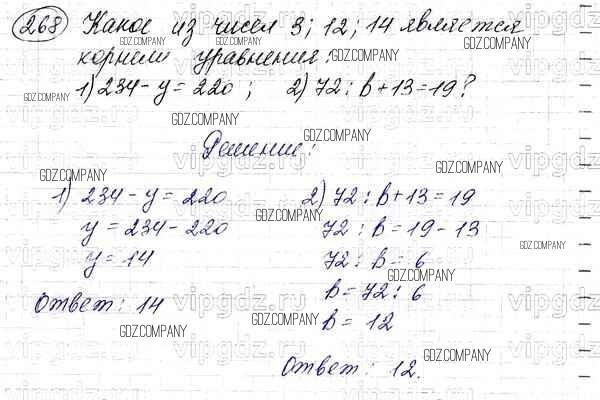 268 Какое из чисел 3; 12; 14 является
корнем уравнения:
1) 234 - y = 220 ; 2) 72 : b + 13 = 19 ?
Решение:
1) 234 - y = 220
y = 234 - 220
y = 14
Ответ: 14
2) 72 : b + 13 = 19
72 : b = 19 - 13
72 : b = 6
b = 72 : 6
b = 12
Ответ: 12.
GDZ.COMPANY
vipgdz.ru